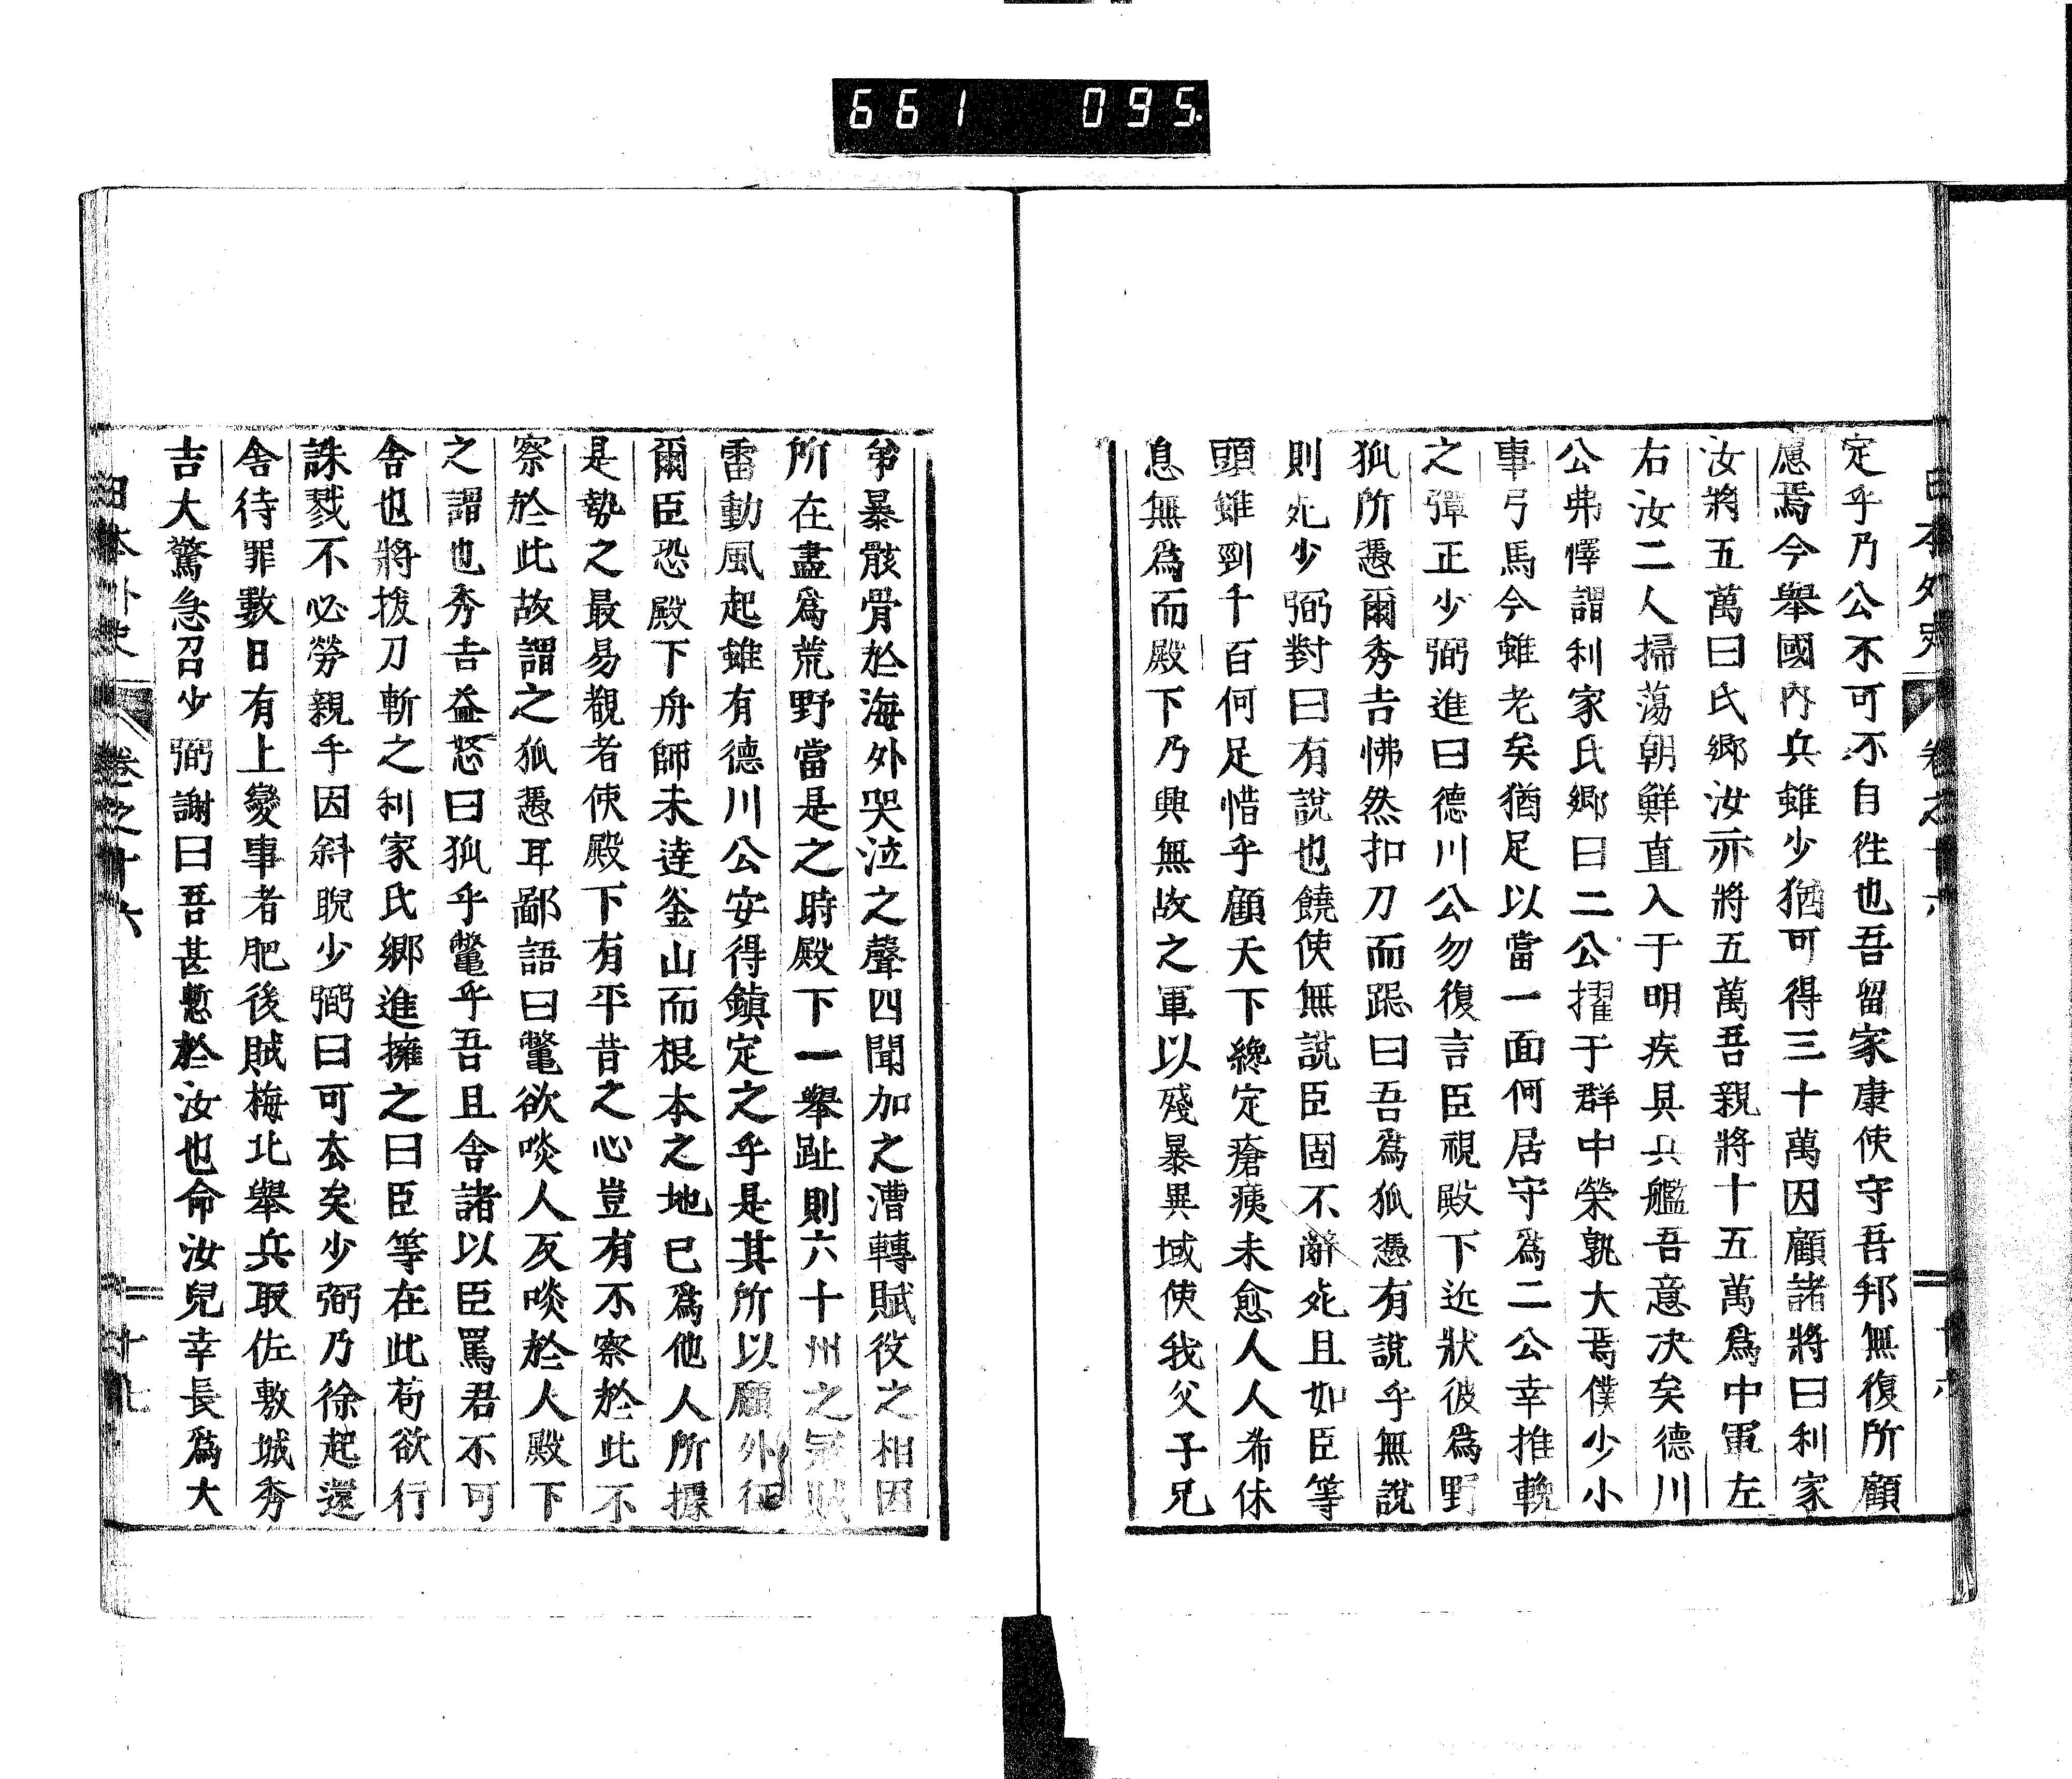 661 095
日本外史 卷之十六 十六
定乎乃公不可不自徃也吾留家康使守吾邦無復所顧
慮焉今舉國內兵雖少猶可得三十萬因顧諸將曰利家
汝將五萬曰氏鄉汝亦將五萬吾親將十五萬爲中軍左
右汝二人掃蕩朝鮮直入于明疾具兵艦吾意决矣德川
公弗懌謂利家氏鄉曰二公擢于群中榮孰大焉僕少小
事弓馬今雖老矣猶足以當一面何居守爲二公幸推輓
之彈正少弼進曰德川公勿復言臣視殿下近狀彼爲野
狐所憑爾秀吉怫然扣刀而跽曰吾爲狐憑有說乎無說
則死少弼對曰有說也饒使無說臣固不辭死且如臣等
頭雖剄千百何足惜乎顧天下纔定瘡痍未愈人人希休
息無爲而殿下乃興無故之軍以殘暴異域使我父子兄
弟暴骸骨於海外哭泣之聲四聞加之漕轉賦役之相因
所在盡爲荒野當是之時殿下一舉趾則六十州之寇賊
雷動風起雖有德川公安得鎮定之乎是其所以願外征
爾臣恐殿下舟師未達釜山而根本之地已爲他人所據
是勢之最易覩者使殿下有平昔之心豈有不察於此不
察於此故謂之狐憑耳鄙語曰鼈欲啖人反啖於人殿下
之謂也秀吉益怒曰狐乎鼈乎吾且舍諸以臣罵君不可
舍也將拔刀斬之利家氏鄉進擁之曰臣等在此苟欲行
誅戮不必勞親手因斜睨少弼曰可去矣少弼乃徐起還
舍待罪數日有上變事者肥後賊梅北舉兵取佐敷城秀
吉大驚急召少弼謝曰吾甚慙於汝也命汝兒幸長爲大
日本外史 卷之十六 十七